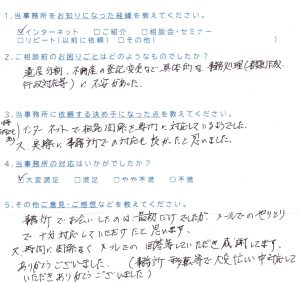 1.当事務所をお知りになった経緯を教えてください。
☑インターネット □ご紹介 □相談会・セミナー
□リピート(以前に依頼) □その他(
2.ご相談前のお困りごとはどのようなものでしたか?
遺産分割、不動産の登記変更など、具体的な事務処理(書類作成、
行政対応等)に不安があった。
3.当事務所に依頼する決め手になった点を教えてください。
インターネットで相続関係を専門に対応しているようでした。
又、実際に事務所での対応も良かったと思いました。
4.当事務所の対応はいかがでしたか?
☑大変満足 □満足 □やや不満 □不満
5.その他ご意見・ご感想などを教えてください。
事務所でお会いしたのは最初だけでしたが、メールでのやりとり
で十分対応していただけたと思います。
又、時間に関係なくメールでの回答等していただき感謝してます。
ありがとうございました。(事務所移転等で大変忙しい中対応して
いただきありがとうございました)